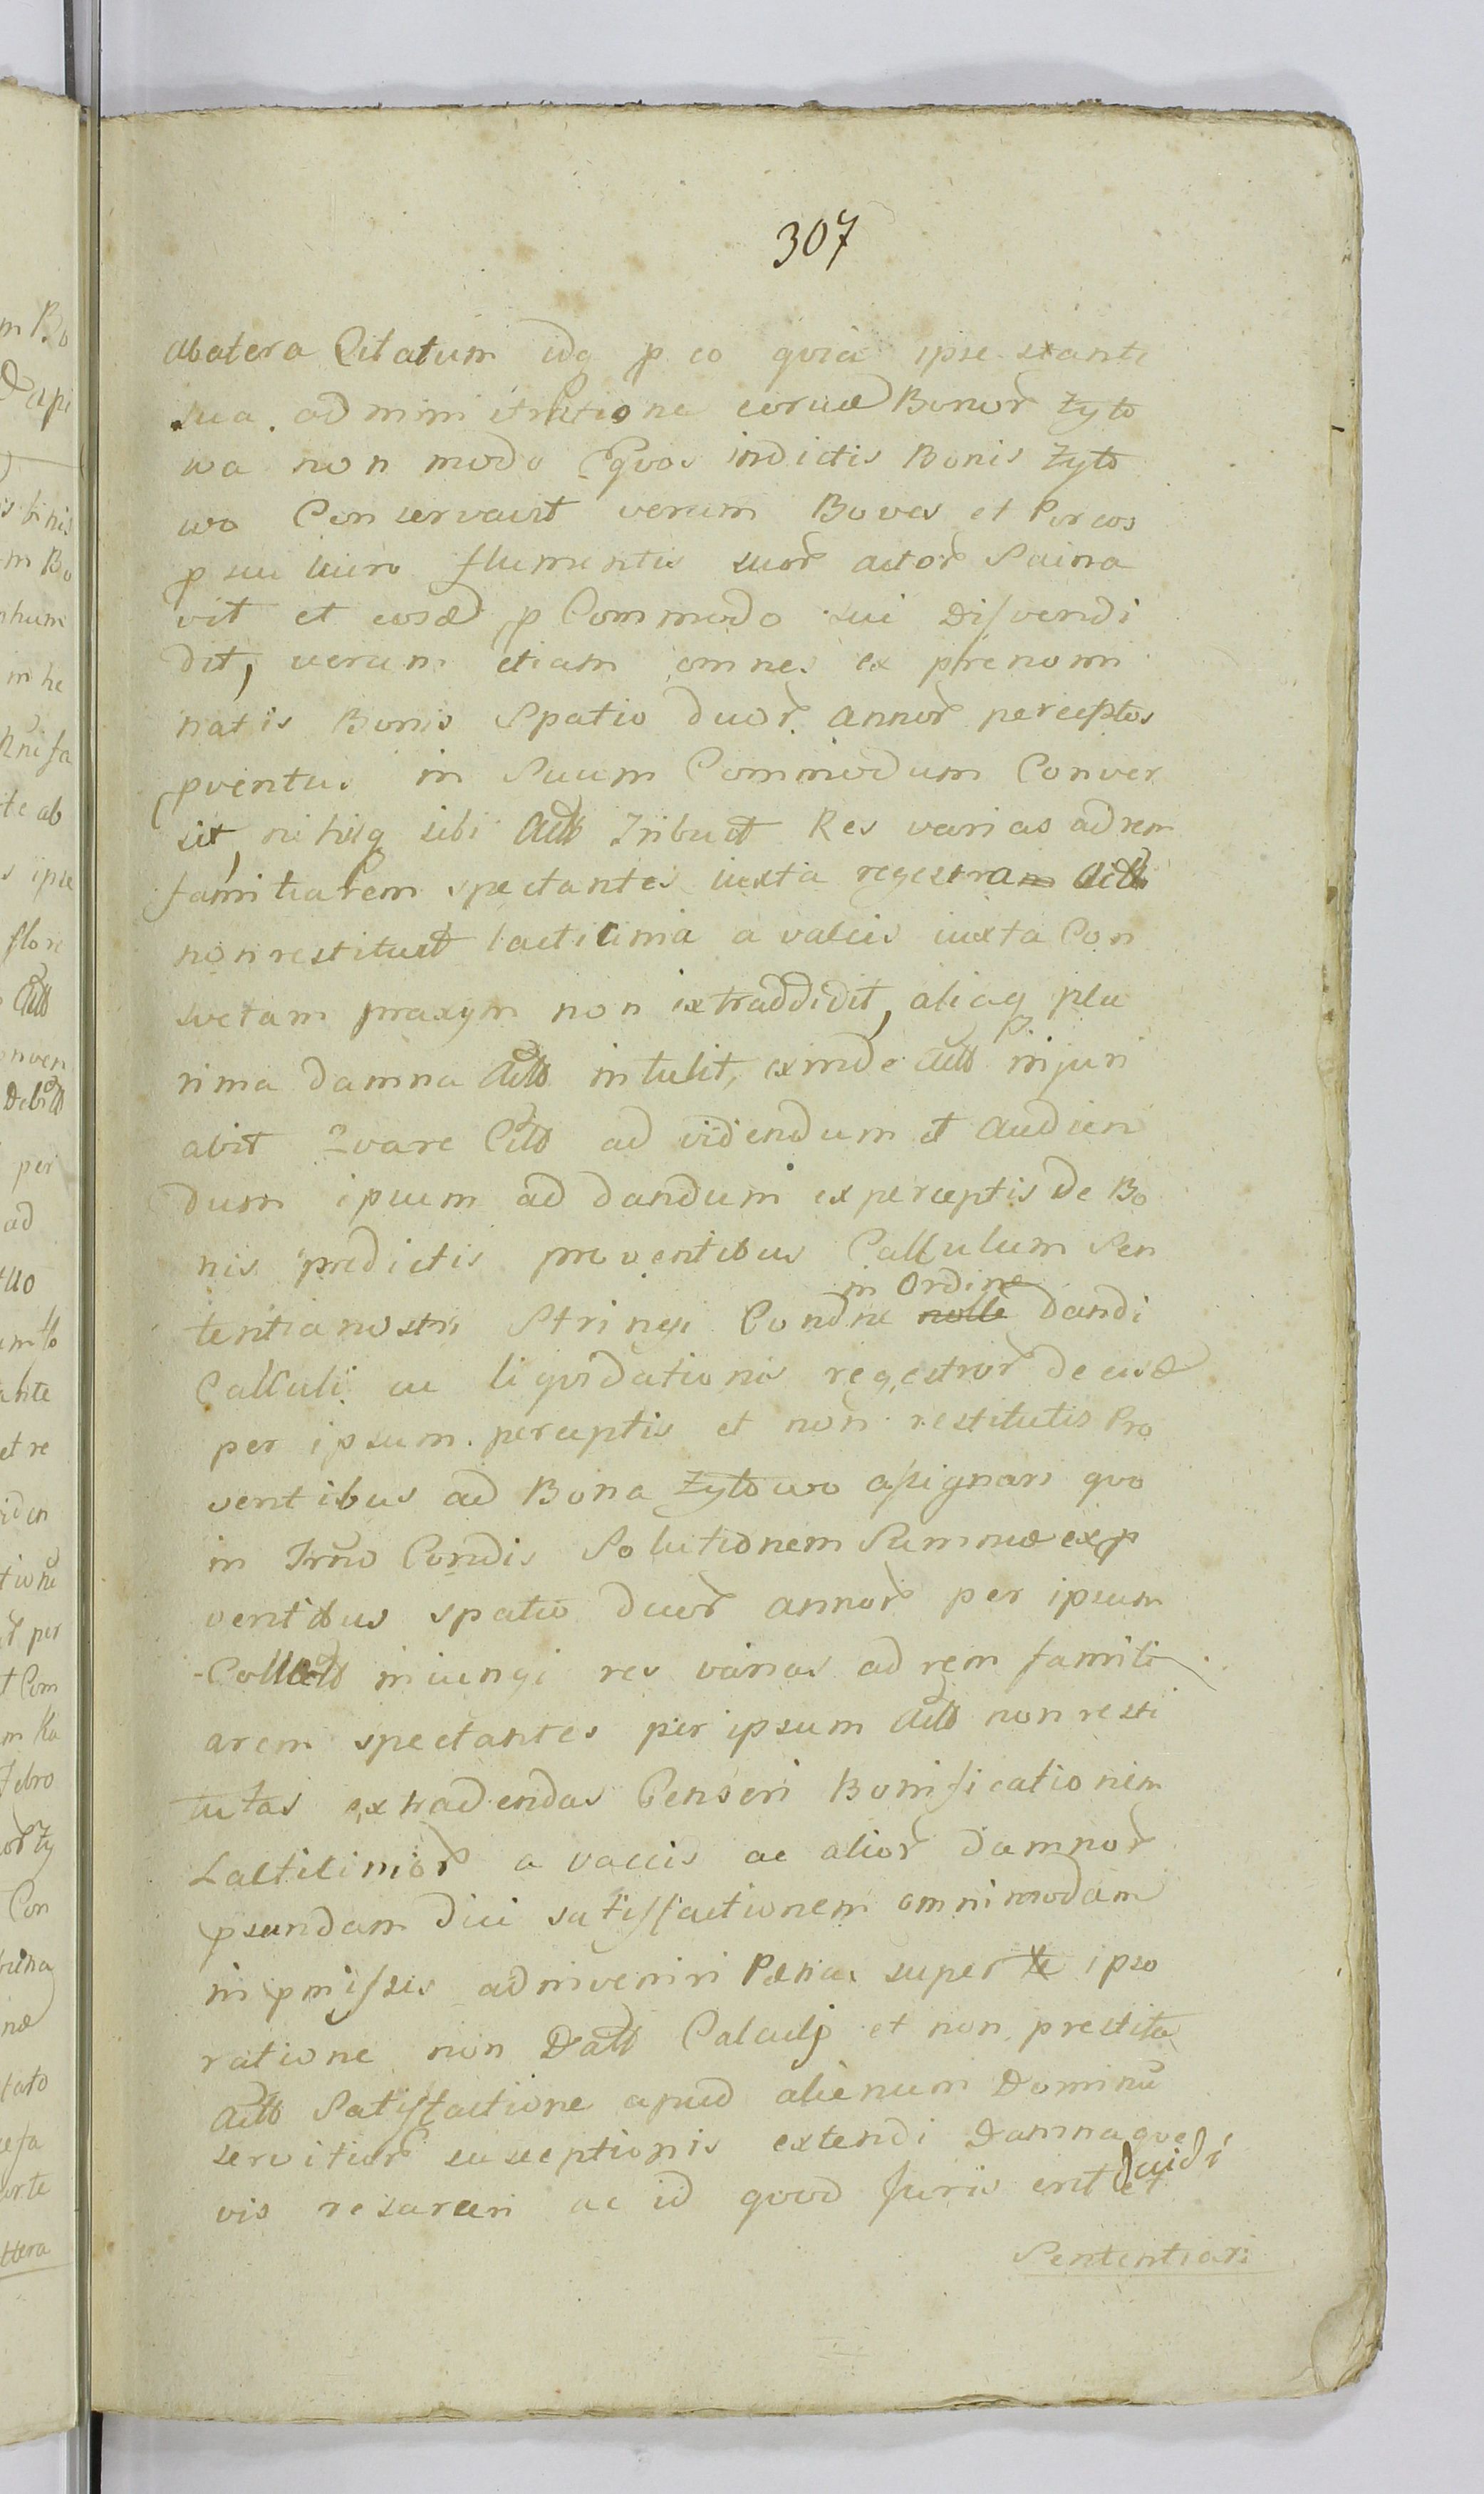 307
abatera Citatum idq p eo quia ipse stante
sua administratione eorund Bonor Zyto
wa non modo Equos indictis Bonis Zyto
wo Conservavit verum Boves et Porcos
p suo lucro frumentis suor actor Saina
vit et eosd p Commodo sui disvendi
dit, verum etiam omnes ex prenomi
natis Bonis Spatio duor annor perceptos
pventus in Suum Commodum Conver
sit, nihilq sibi Actb Tribuit Res varias ad rem
familiarem spectantes iuxta regestram Actb
non restituit lacticinia a vaccis iuxta Con
svetam praxym non extraddidit, aliaq plu
rima damna Actb intulit, exinde Actb injuri
abit Quare Citb ad videndum et Audien
dum ipsum ad dandum ex perceptis de Bo
nis predictis proventibus Callulum Sen
tentia nostri Stringi Condne nolle in Ordine dandi
Calculi ac liquidationis regestror de eisd
per ipsum perceptis et non restitutis Pro
ventibus ad Bona Zytowo assignari quo
in Trno Condis Solutionem Summae ex p
ventibus spatio duor annor per ipsum
Collectb iniungi res varias ad rem famili
arem spectantes per ipsum Actb non resti
tutas extradendas Censeri Bonificationem
Lacticinior a vaccis ac alior damnor
psundam dici satisfactionem omnimodam
in pmissis adinveniri Paenas super te ipso
ratione non Datb Calculj et non prestita
Actb Satisfactione apud alienum Dominu
servitior susceptionis extendi Damnaque
vis resarciri ac id quod Juris erit et Judi
Sententiari